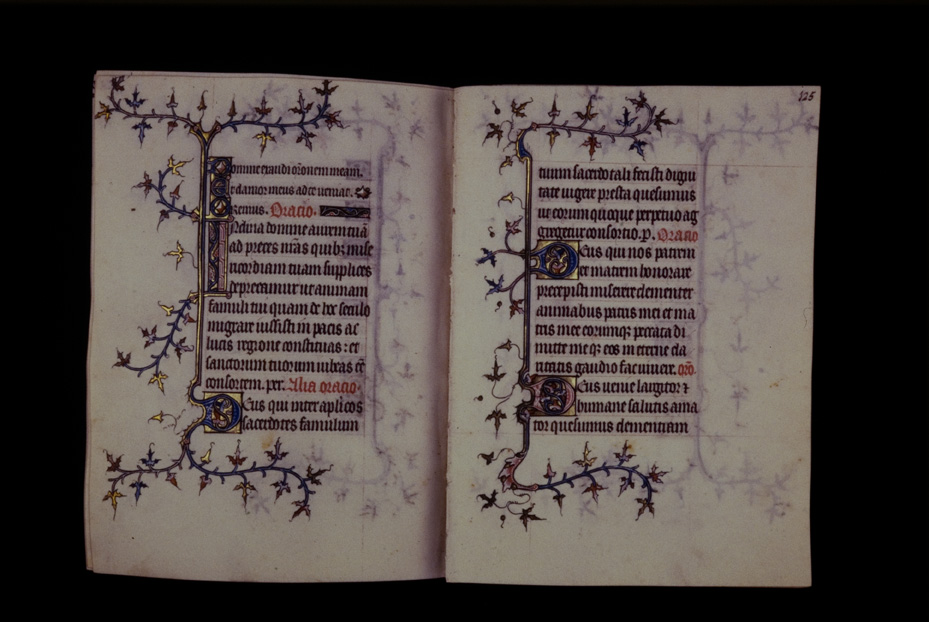 Domine exaudi orõnem meam.
Et clamor meus ad te veniat.
Oremus. Oracio.
Inclina domine aurem tuã
ad preces nr̃as quibȝ mise
ricordiam tuam supplices
deprecamur ut animam
famuli tui quam de hoc seculo
migrare iussisti in pacis ac
lucis regione constituas : et
sanctorum tuorum iubeas eẽ
consortem. per. Alia oracio.
Deus qui inter aplicos
sacerdotes famulum
125
tuum sacerdotali fecisti digni
tate vigere presta quesumus
ut eorum quoque perpetuo ag
gregetur consortio. P. Oracio
Deus qui nos patrem
et matrem honorare
precepisti miserere clementer
animabus patris mei et ma
tris mee eorumqȝ peccata di
mitte meqȝ eos in eterne cla
ritatis gaudio fac vivere. orõ.
Deus venie largitor ⁊
humane salutis ama
tor quesumus clementiam